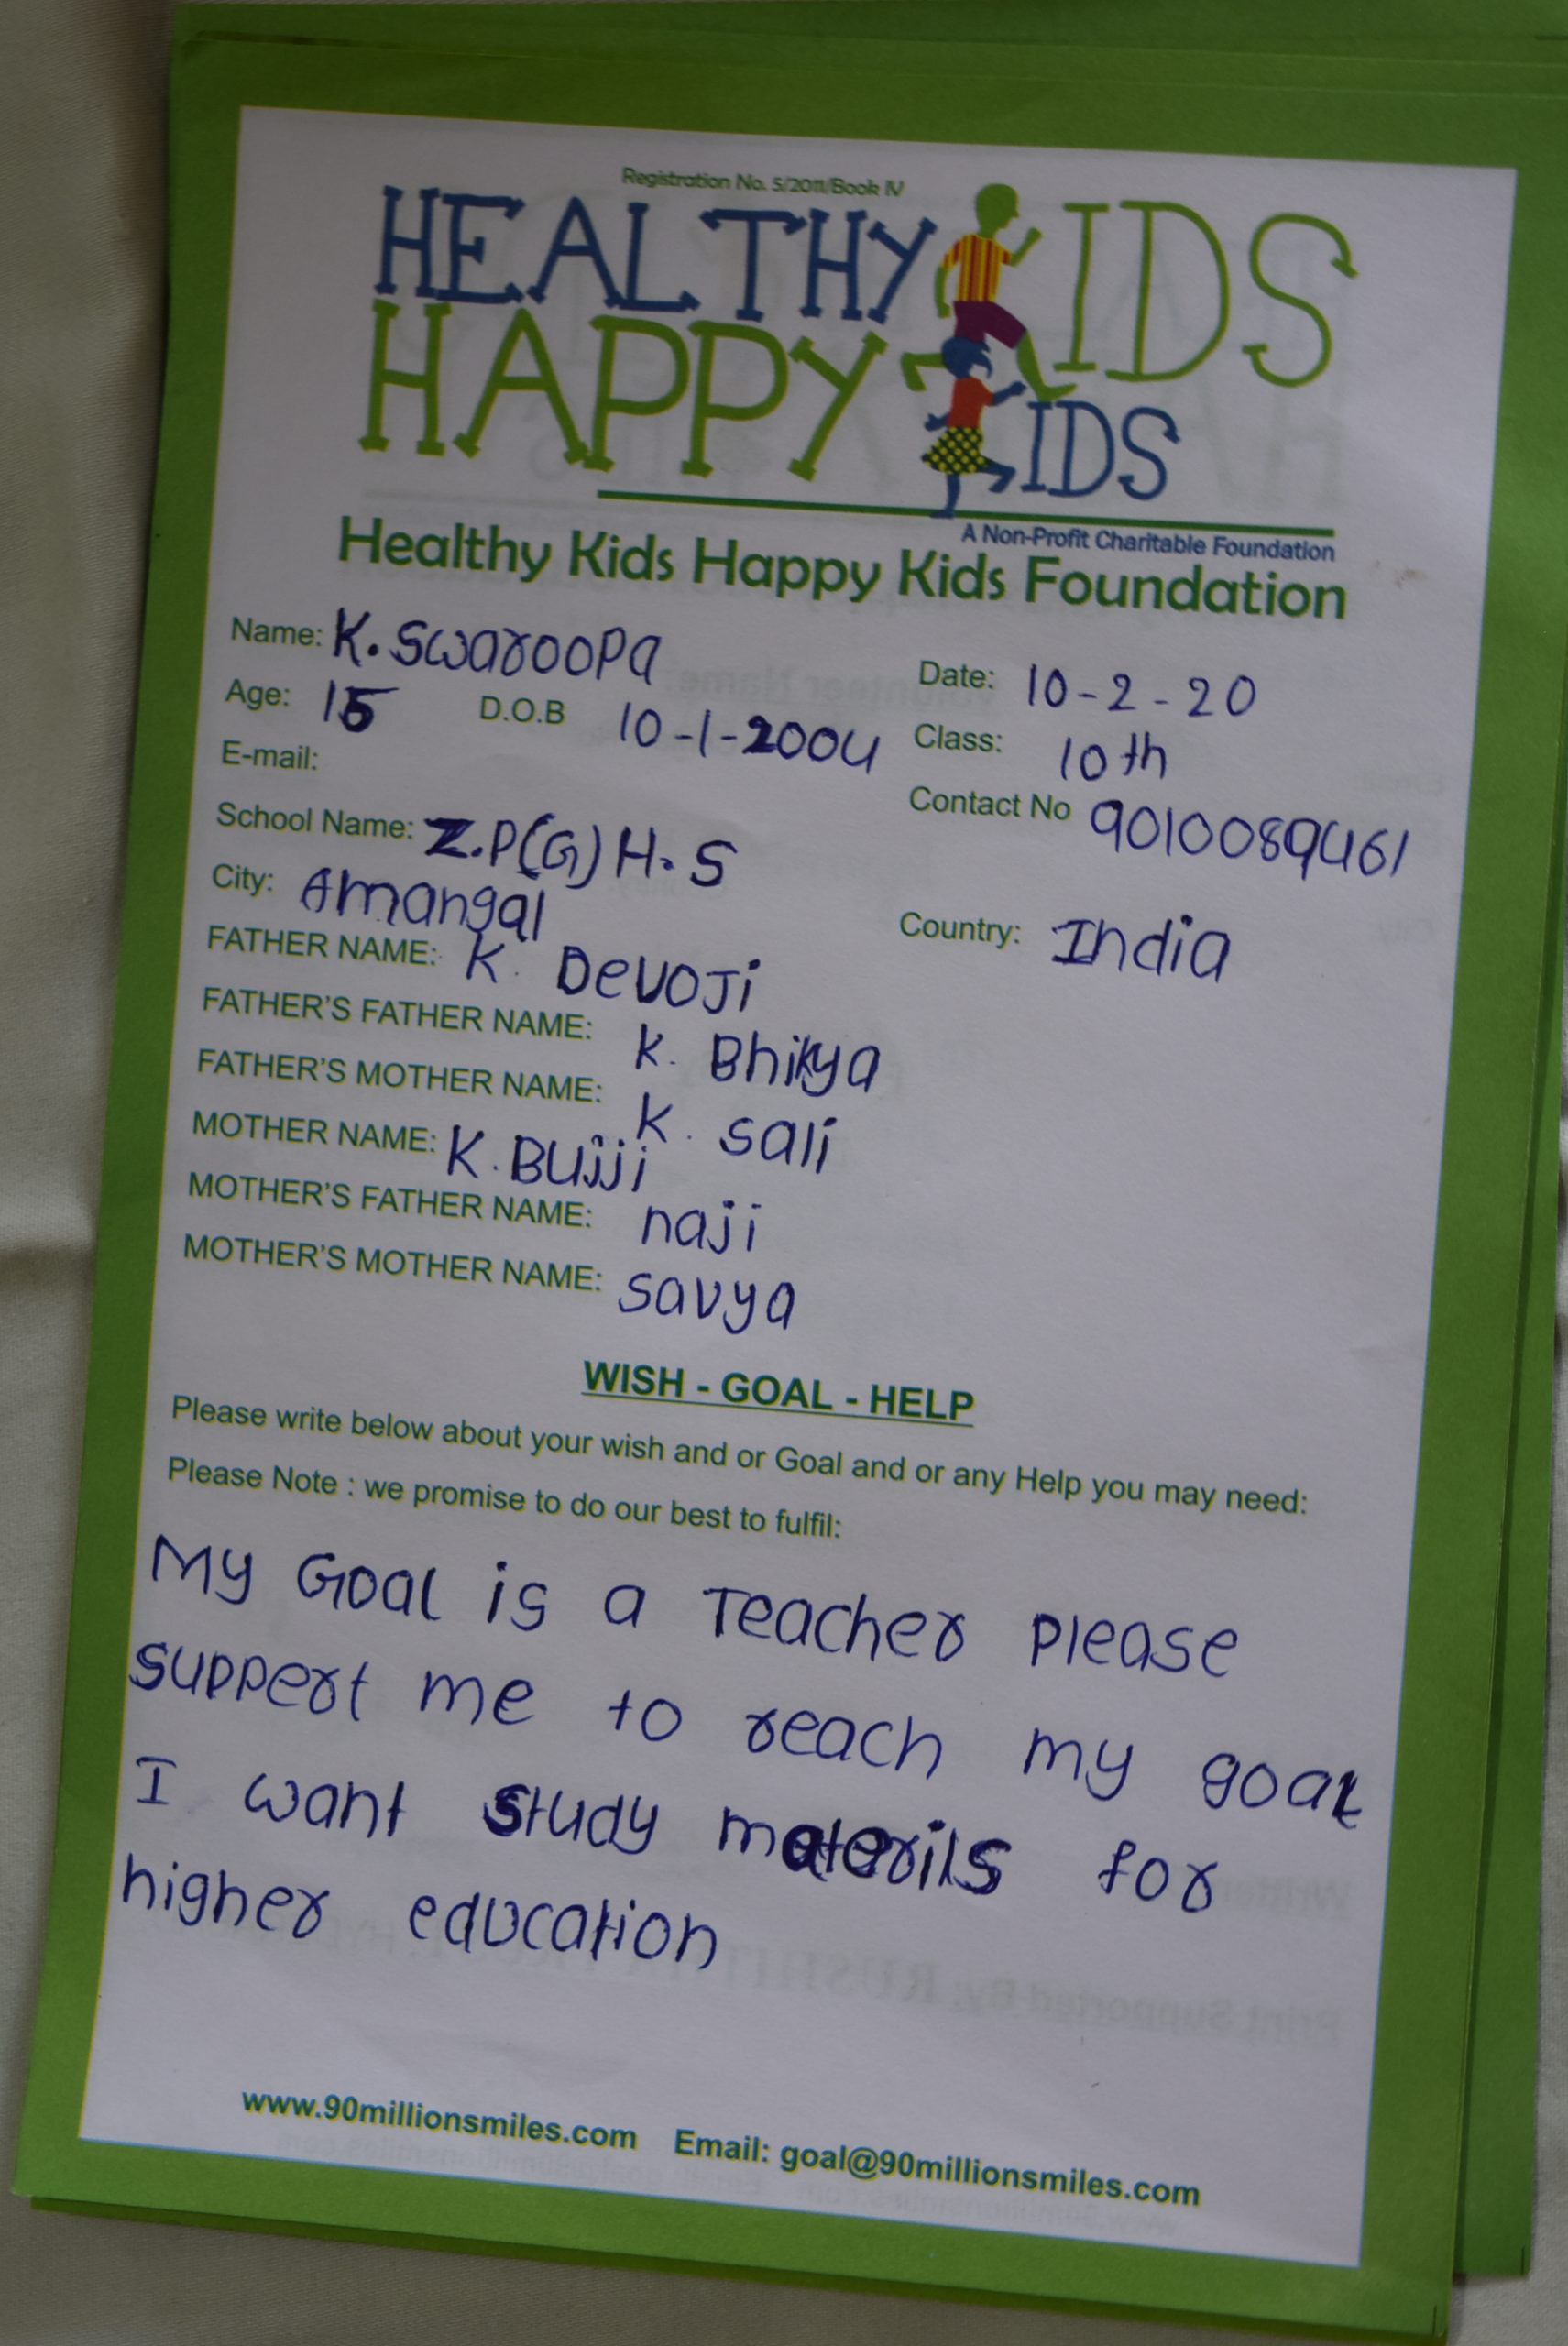 Registration No. 5/2011/Book IV
HEALTHY KIDS
HAPPY KIDS
A Non-Profit Charitable Foundation
Healthy Kids Happy Kids Foundation
Name: K. Swaroopa Date: 10-2-20
Age: 15 D.O.B 10-1-2004 Class: 10th
E-mail: Contact No 9010089461
School Name: Z.P(G) H.S
City: Amangal Country: India
FATHER NAME: K. DevoJi
FATHER'S FATHER NAME: K. Bhikya
FATHER'S MOTHER NAME: K. Sali
MOTHER NAME: K. Bujji
MOTHER'S FATHER NAME: naji
MOTHER'S MOTHER NAME: Savya
WISH - GOAL - HELP
Please write below about your wish and or Goal and or any Help you may need:
Please Note : we promise to do our best to fulfil:
My Goal is a Teacher Please
suppert me to reach my goal
I want study materils for
higher education
www.90millionsmiles.com Email: goal@90millionsmiles.com